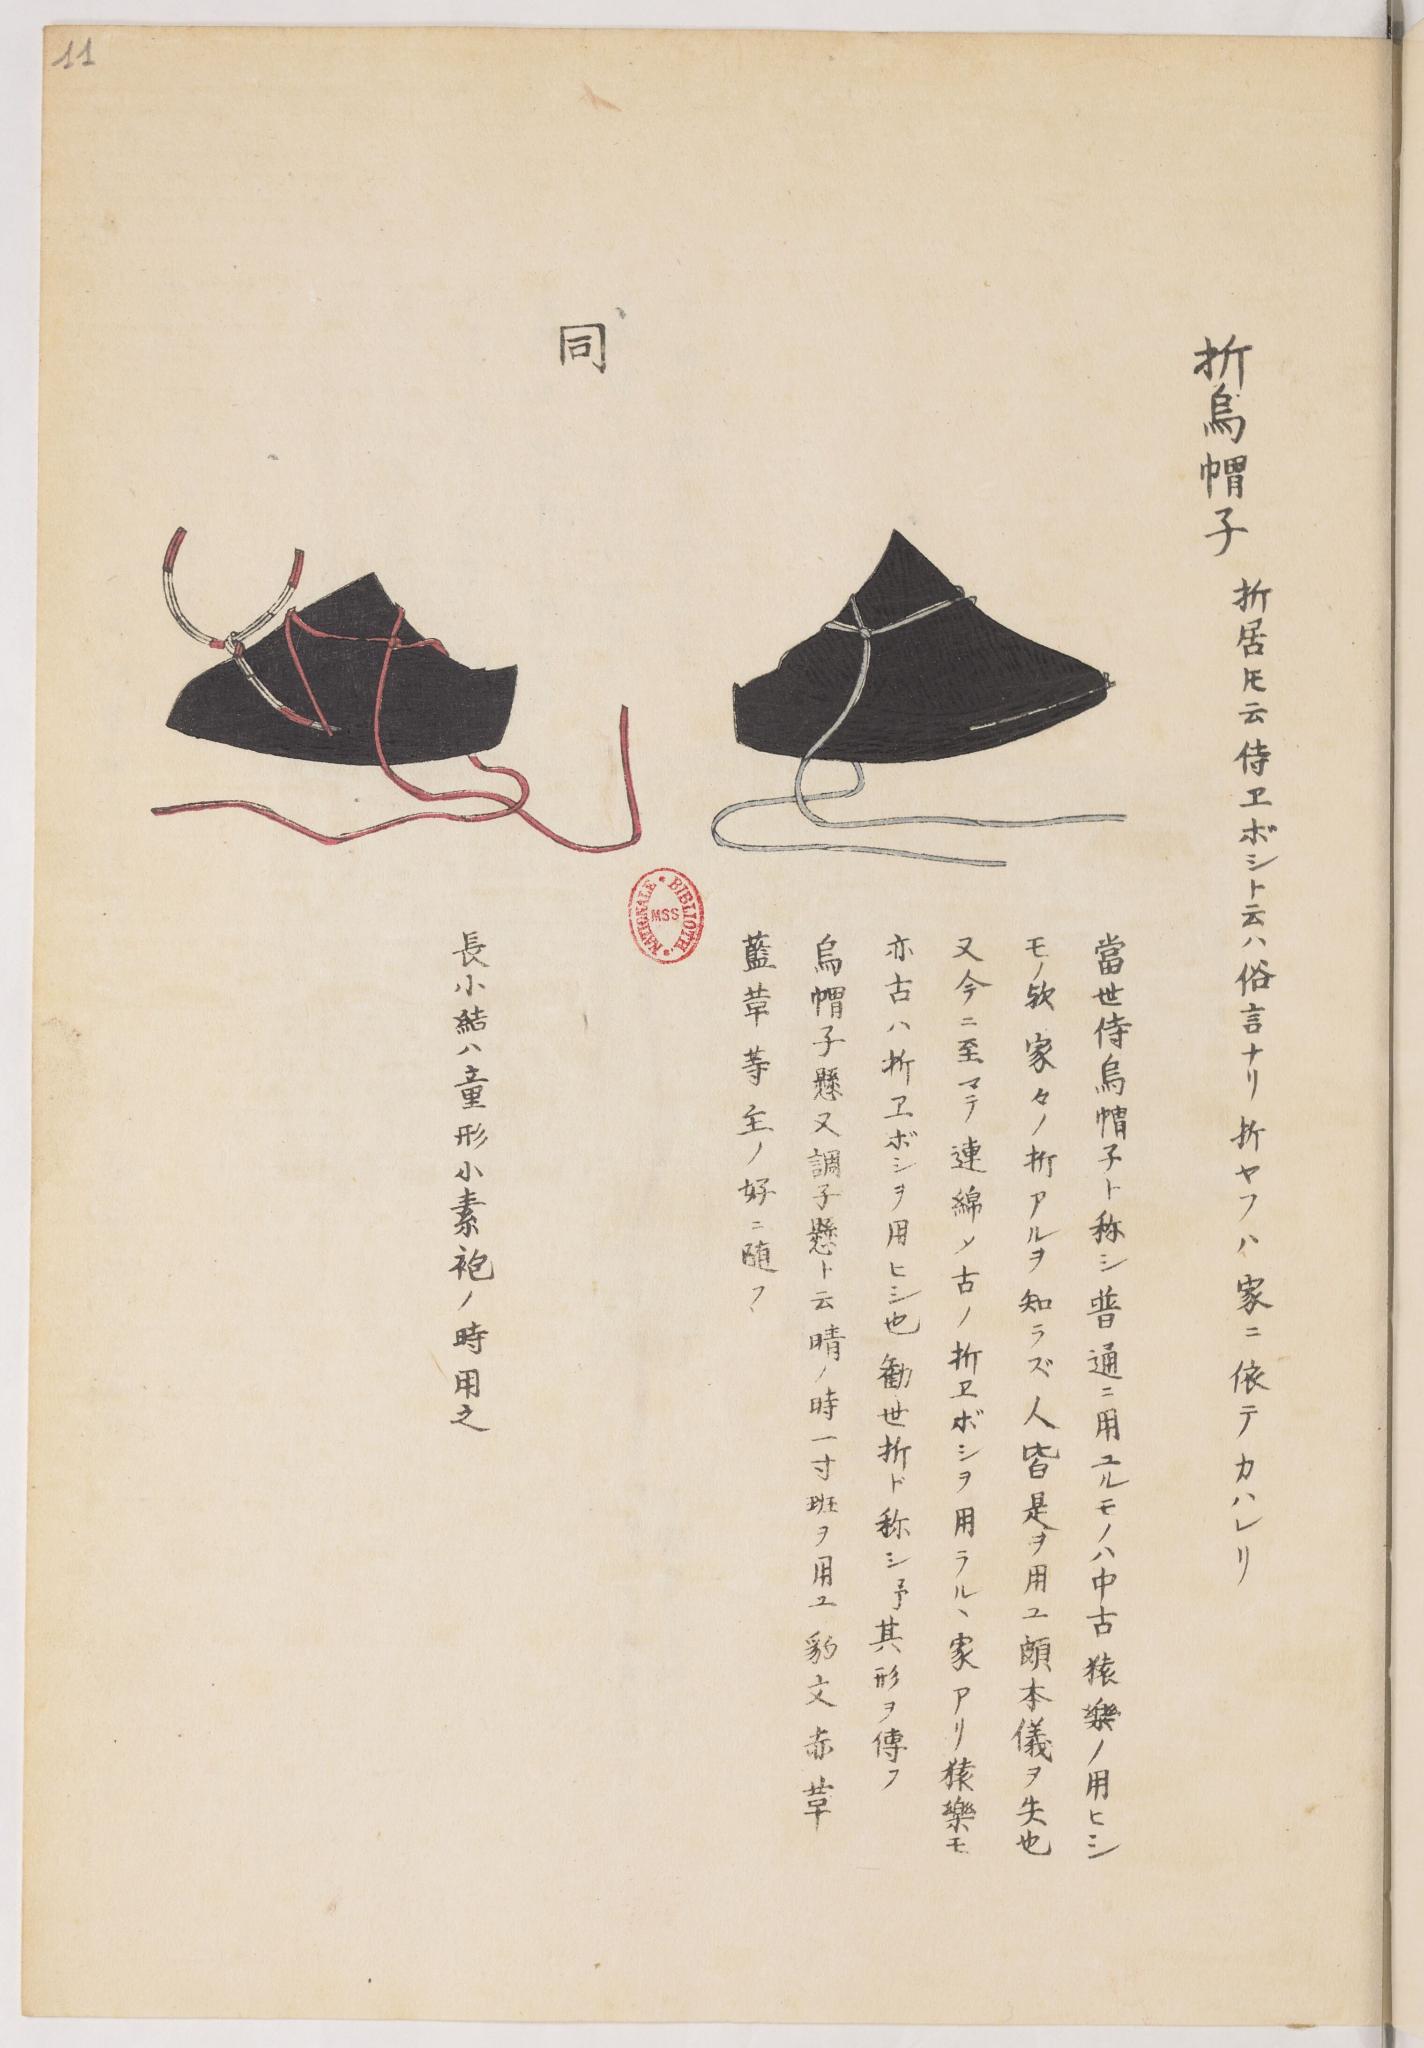 11
折烏帽子 折居トモ云侍ヱボシト云ハ俗言ナリ折ヤフハ家ニ依テカハレリ
當世侍烏帽子ト称シ普通ニ用ユルモノハ中古猿樂ノ用ヒシ
モノ欤家々ノ折アルヲ知ラズ人皆是ヲ用ユ頗本儀ヲ失也
又今ニ至マテ連綿〆古ノ折ヱボシヲ用ラルヽ家アリ猿樂モ
亦古ハ折ヱボシヲ用ヒシ也勸世折ト称シ予其形ヲ傳フ
烏帽子懸又調子懸ト云晴ノ時一寸班ヲ用ユ豹文赤革
藍革等主ノ好ニ随フ
同
長小結ハ童形小素袍ノ時用之
BIBLIOTH. NATIONALE
MSS